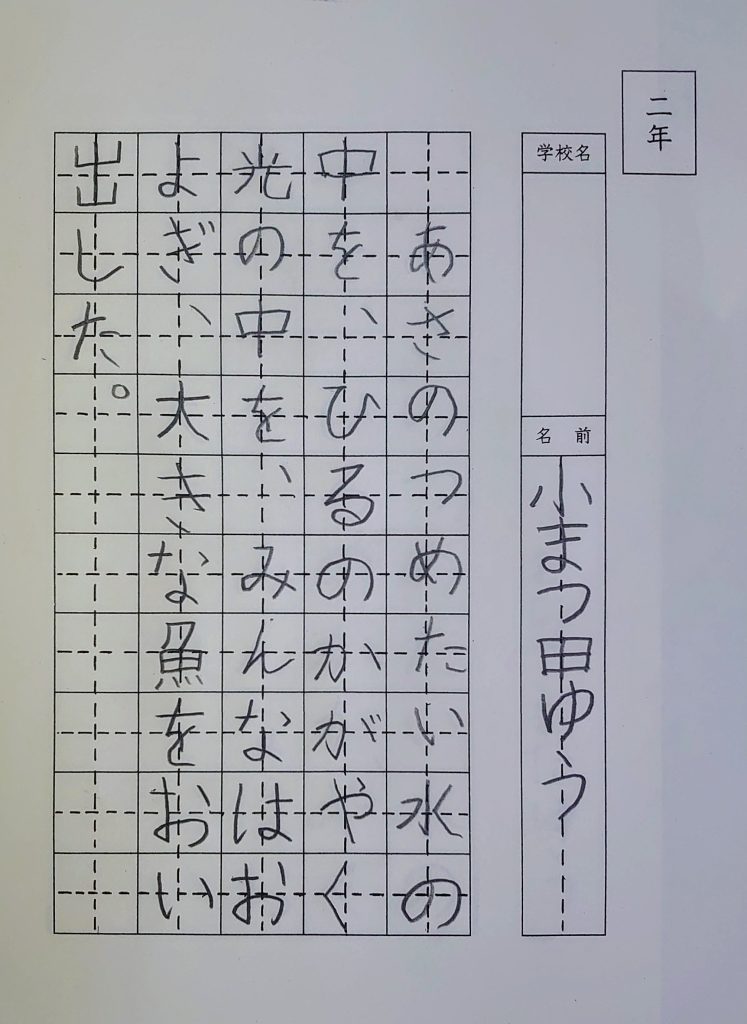 二年
学校名
名前
小まつ田ゆう
　あさのつめたい水の
中を、ひるのかがやく
光の中を、みんなはお
よぎ、大きな魚をおい
出した。